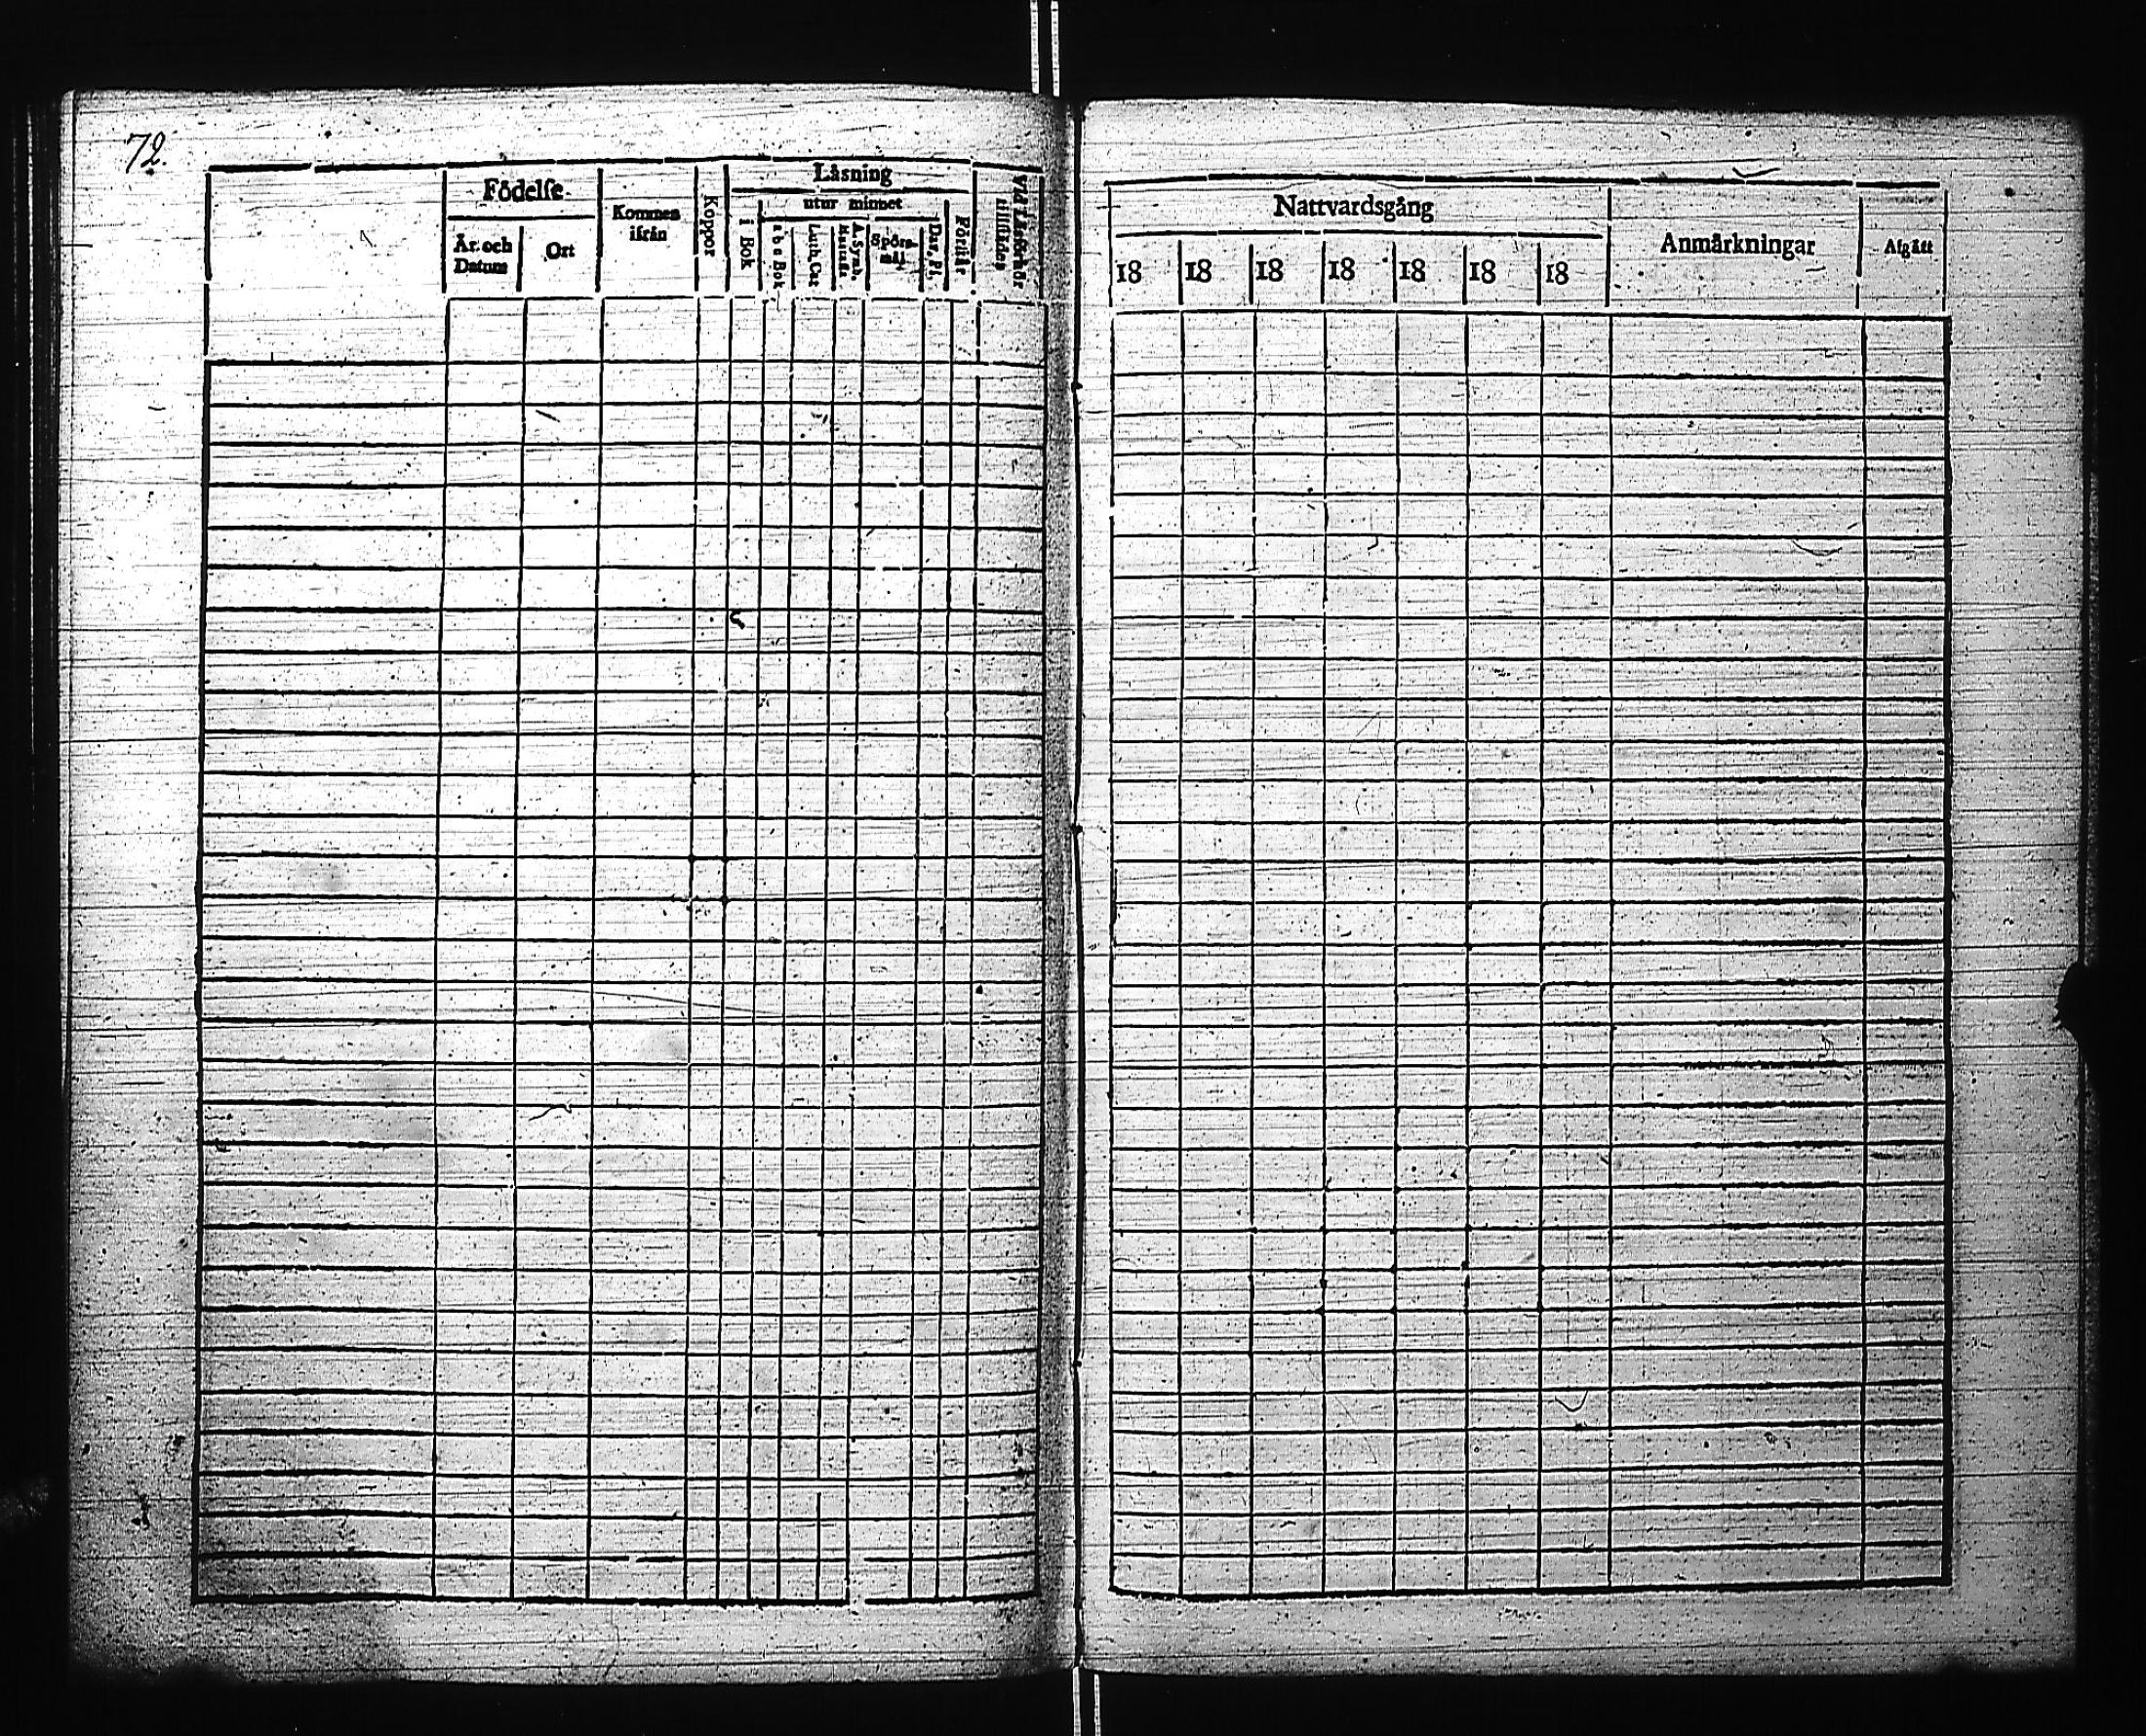 72.
Födelse
År och Datum
Ort
Kommen ifrån
Koppor
Läsning
utur minnet
i Bok
a b c Bok
Luth. Cat
Spörsmål
Dav. Ps.
Förstår
Vid Läsförhör tillstädes
Nattvardsgång
18 18 18 18 18 18 18
Anmärkningar
Afgått